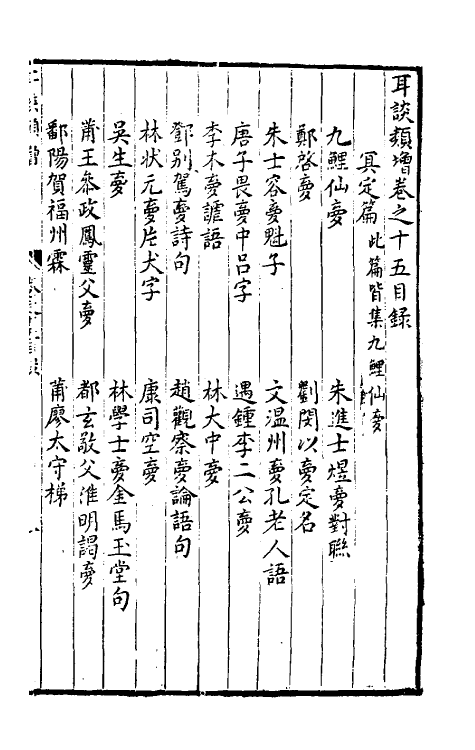 耳談類增卷之十五目錄
冥定篇 此篇皆集九鯉仙夣
九鯉仙夣 朱進士煜夣對聯
鄭啓夣 劉閔以夣定名
朱士容夣魁子 文溫州夣孔老人語
唐子畏夣中呂字 遇鍾李二公夣
李木夣謔語 林大中夣
鄧別駕夣詩句 趙觀察夣論語句
林狀元夣片犬字 康司空夣
吳生夣 林學士夣金馬玉堂句
莆王叅政鳳靈父夣 都玄敬父淮明謁夣
鄱陽賀福州霖 莆廖太守梯